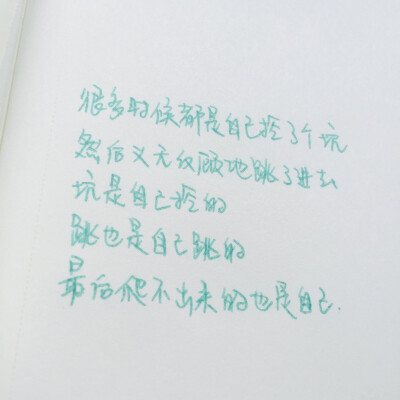 很多时候都是自己挖了个坑
然后义无反顾地跳了进去
坑是自己挖的
跳也是自己跳的
最后爬不出来的也是自己.